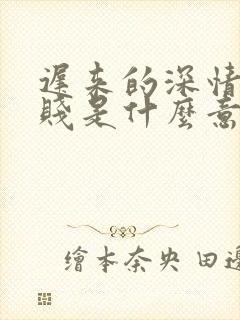 遲来的深情
賤是什麼意
繪本奈央 田邊